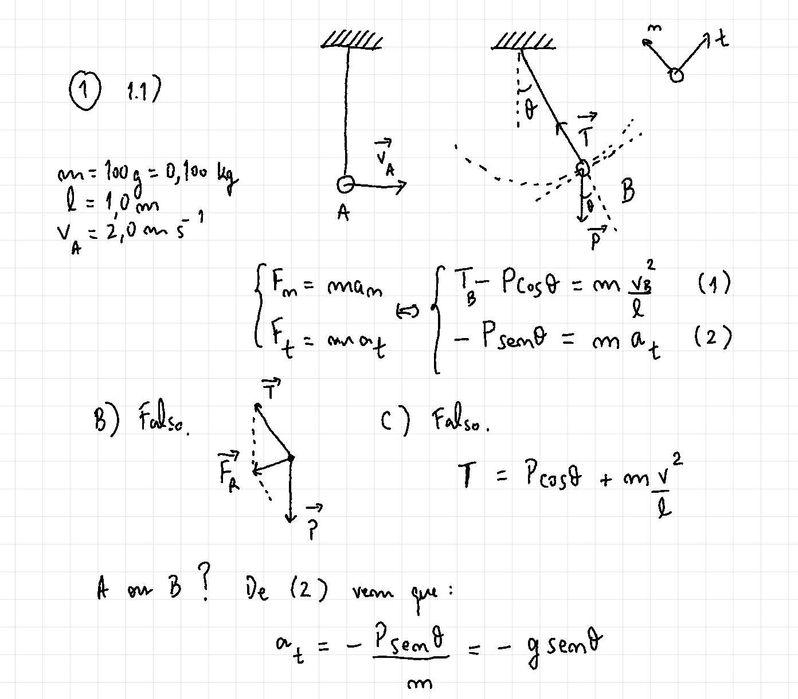 ① 1.1)
m = 100 g = 0,100 kg
l = 1,0 m
v_A = 2,0 m s⁻¹
A
v⃗_A
θ
T⃗
θ
B
P⃗
n
t
{ F_n = m a_n ⇔ { T_B − P cos θ = m v_B²/l (1)
{ F_t = m a_t { − P sen θ = m a_t (2)
B) Falso.
T⃗
F⃗_R
P⃗
C) Falso.
T = P cos θ + m v²/l
A ou B ? De (2) vem que :
a_t = − P sen θ / m = − g sen θ